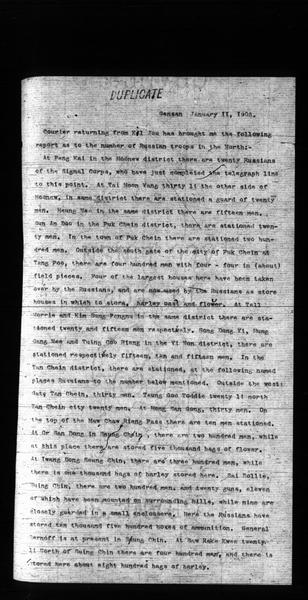 DUPLICATE
Gensan January II, 1905.
Courier returning from Kil Jou has brought me the following
report as to the number of Russian troops in the North:-
At Pang Kai in the Moonew district there are twenty Russians
of the Signal Corps, who have just completed the telegraph line
to this point. At Tai Moon Yang thirty li the other side of
in same district there are stationed a guard of twenty
men. Heung Mee in the same district there are fifteen men.
Gun An Doo in the Puk Chein district, there are stationed twen-
ty men. In the town of Puk Chein there are stationed two hun-
dred men. Outside the south gate of the city of Puk Chein at
Tang Poo, there are four hundred men with four - four in (about)
field pieces. Four of the largest houses here have been taken
over by the Russians, and are now used by the Russians as store
houses in which to store, barley oast and flower. At Tall
Morrie and Kim Sung Pengun in the same district there are sta-
tioned twenty and fifteen men respectively. Song Dong Ki, Sung
Gang Mee and Tsing Coo Riang in the Yi Won district, there are
stationed respectively fifteen, ten and fifteen men. In the
Tan Chein district there are stationed, at the following named
places Russians to the number below mentioned. Outside the west
gate Tan Chein, thirty men. Teung Goo Toddie twenty li north
Tan Chein city twenty men. At Mong San Gong, thirty men. On
the top of the Maw Chaw Riang Pass there are ten men stationed.
At Or San Dong in Seung Chein, there are two hundred men, while
at this place there are stored five thousand bags of flower.
At Iwang Dong Seung Chin, there are three hundred men, while
there is one thousand bags of barley stored here. Sai Dollie,
Suing Chin, there are two hundred men, and twenty guns, eleven
of which have been mounted on surrounding hills, while nine are
closely guarded in a small enclosure. Here the Russians have
stored ten thousand five hundred boxes of ammunition. General
is at present in Seung Chin. At Saw Rake Kwan twenty
li North of Suing Chin there are four hundred men, and there is
stored here about eight hundred bags of barley.